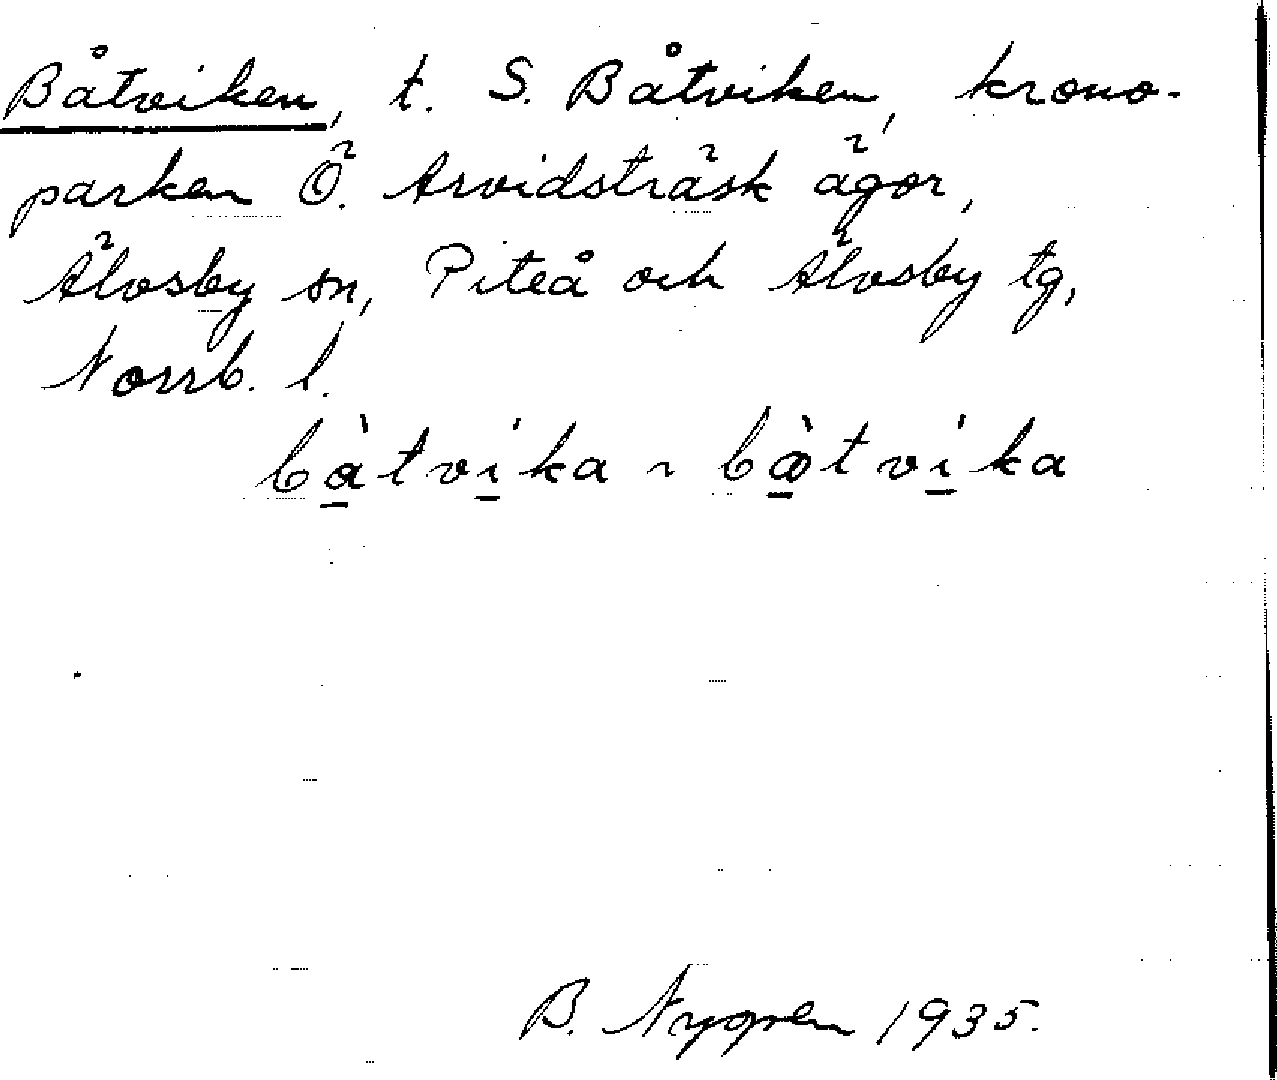 Båtviken, t. S. Båtviken, krono-
parken Ö. Arvidsträsk ägor,
Älvsby sn, Piteå och Älvsby tg,
Norrb. l.
bà̱tvi̱̍ka ~ bæ̱̀tvi̱̍ka
B. Nygren 1935.